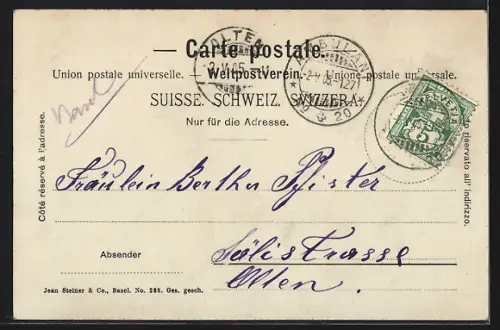 — Carte postale. —
Union postale universelle. — Weltpostverein. — Unione postale universale.
SUISSE. SCHWEIZ. SVIZZERA.
Nur für die Adresse.
Côté réservé à l'adresse.
riservato all' indirizzo.
Basel
OLTEN
2.V.05
AMBULANT
2.V.05.-127
No 20
HELVETIA
5
Fräulein Bertha Pfister
Sälistrasse
Olten
Absender
Jean Steiner & Co., Basel. No. 288. Ges. gesch.